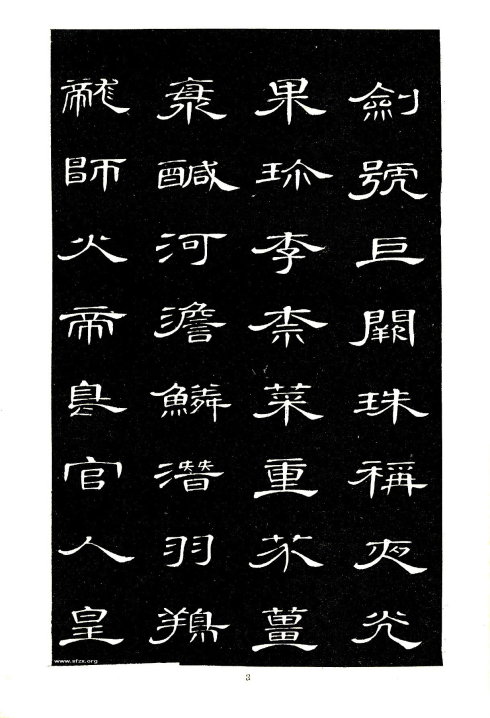 劍號巨闕珠稱夜光
果珎李柰菜重芥薑
海醎河澹鱗潛羽翔
龍師火帝鳥官人皇
www.sfzx.org
3